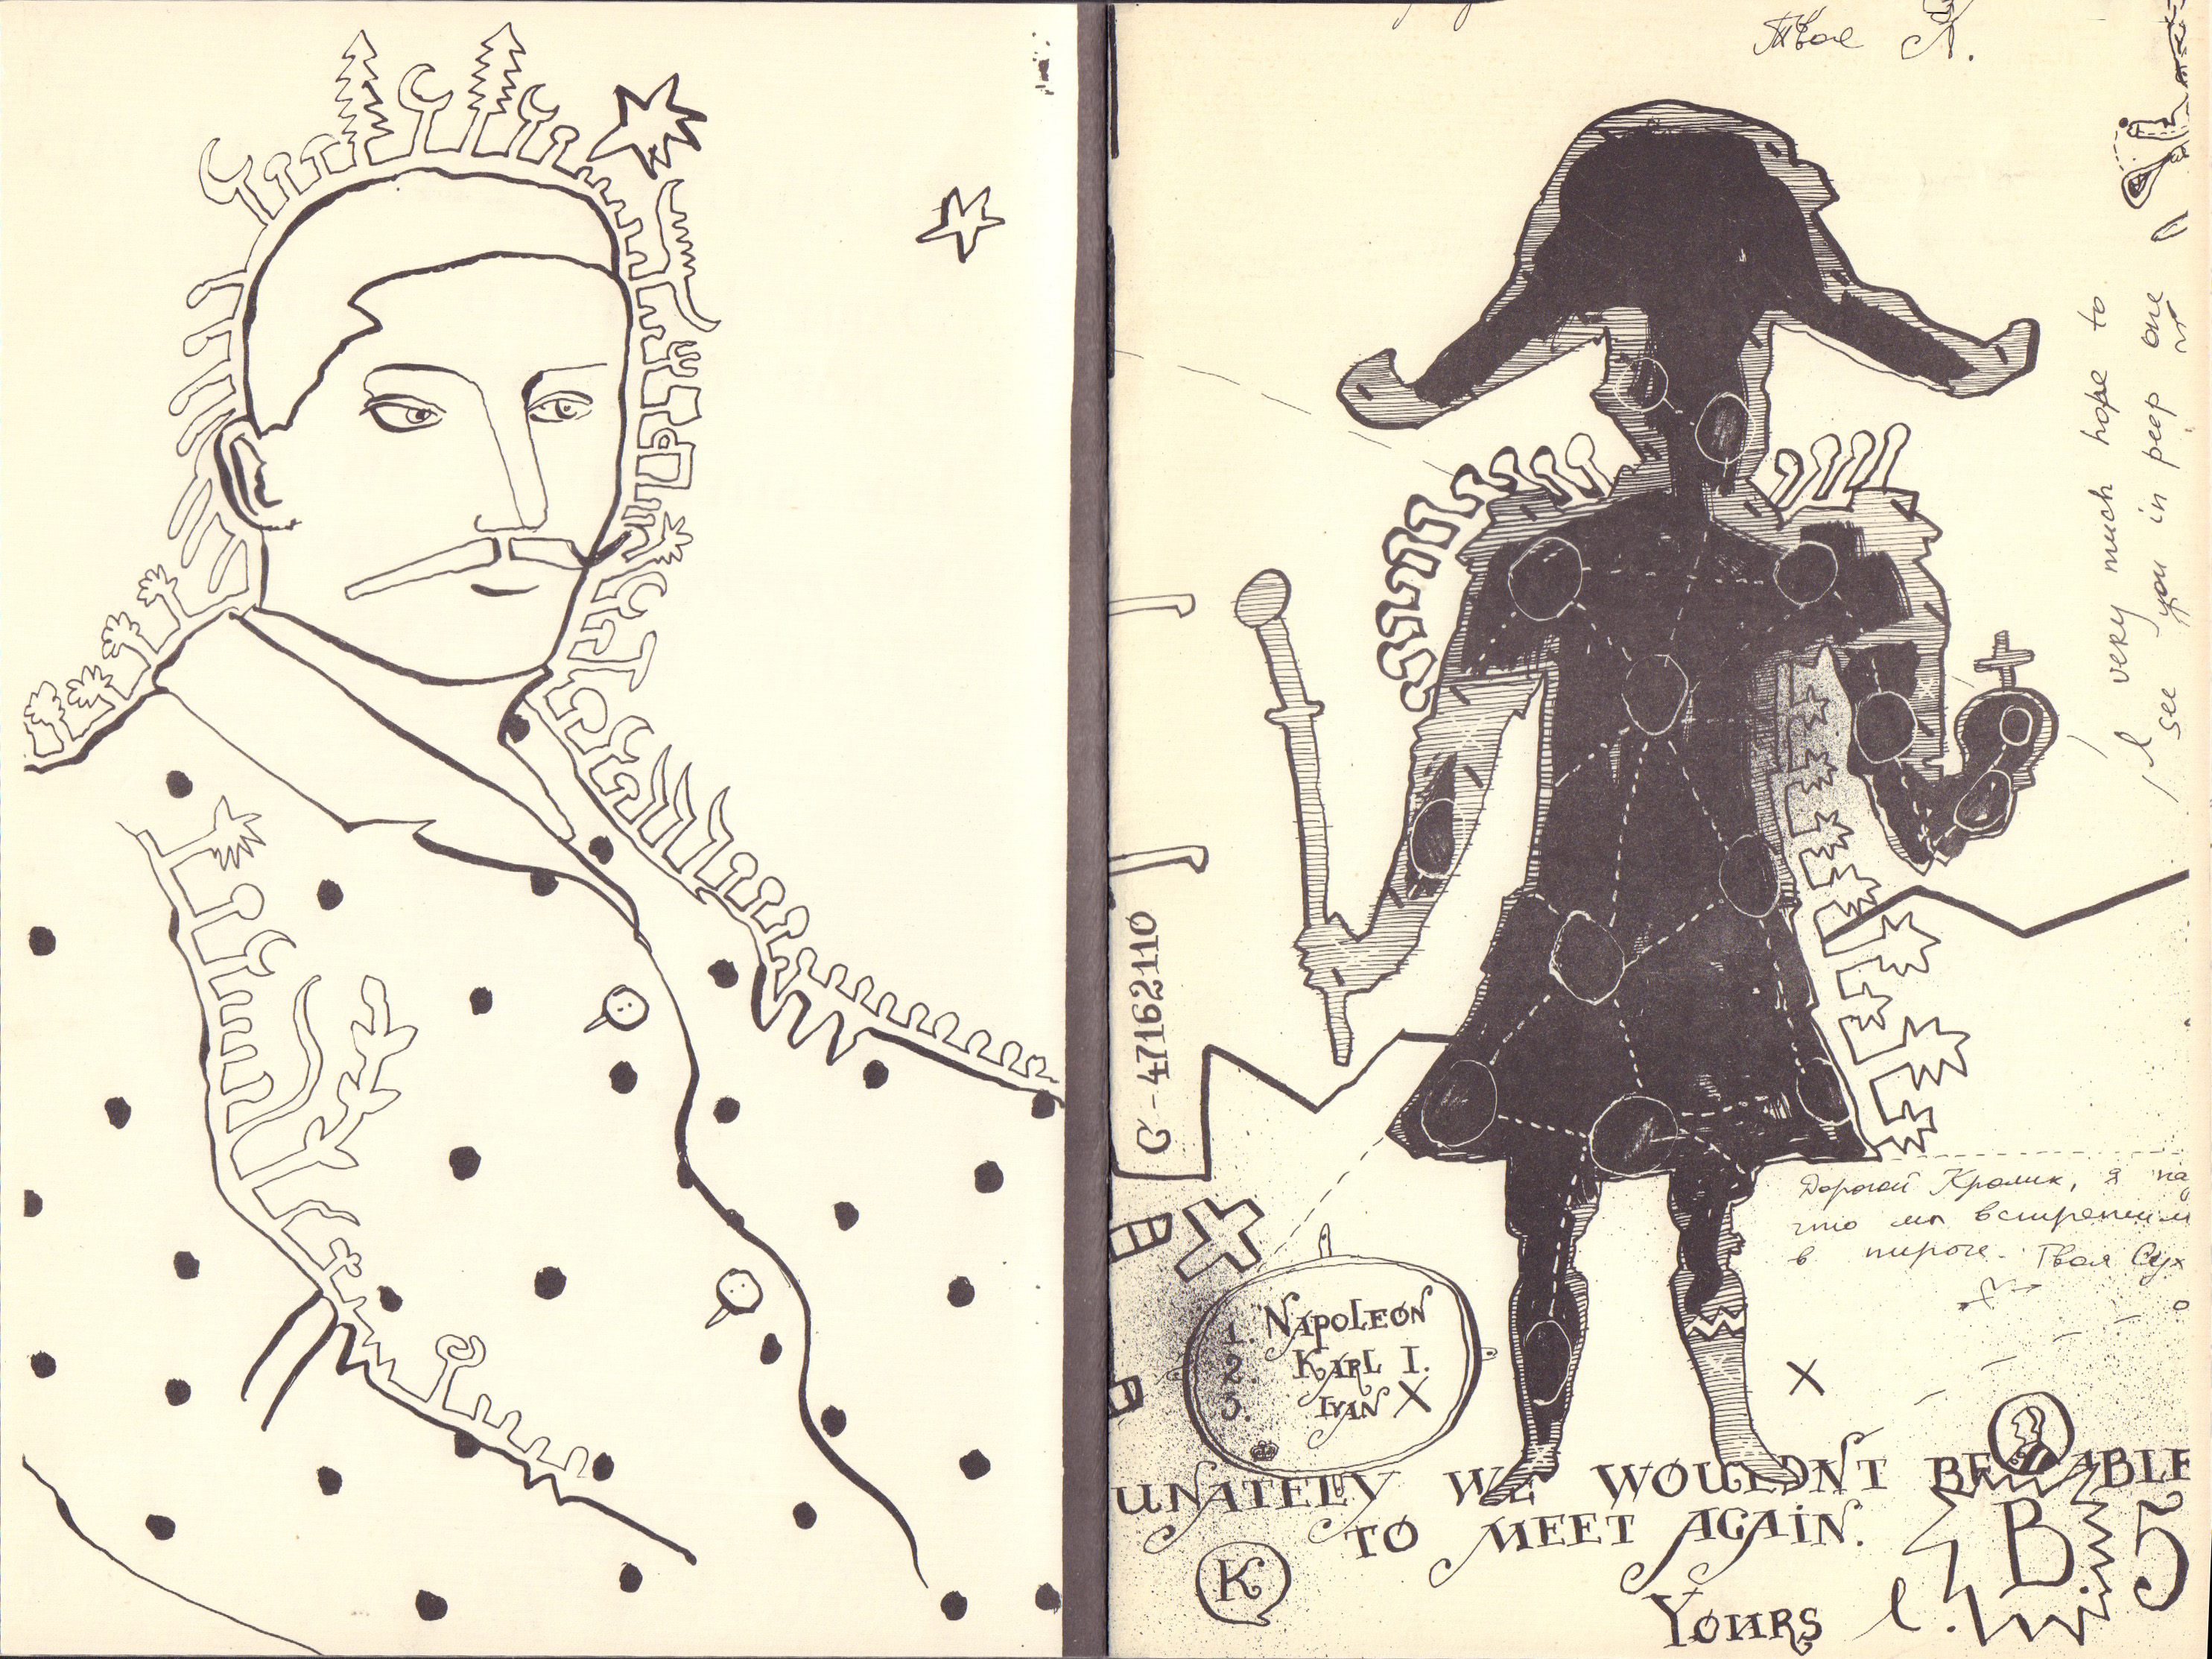 Твоя А.
I very much hope to
see you in peep one
G-47162110
Дорогой Кролик, я на
что мы встретим
в пироге. Твоя Сух
1. Napoleon
2. Karl I.
3. Ivan X
UNATELY WE WOULDNT BE ABLE
TO MEET AGAIN.
K
B 5
YOURS L.